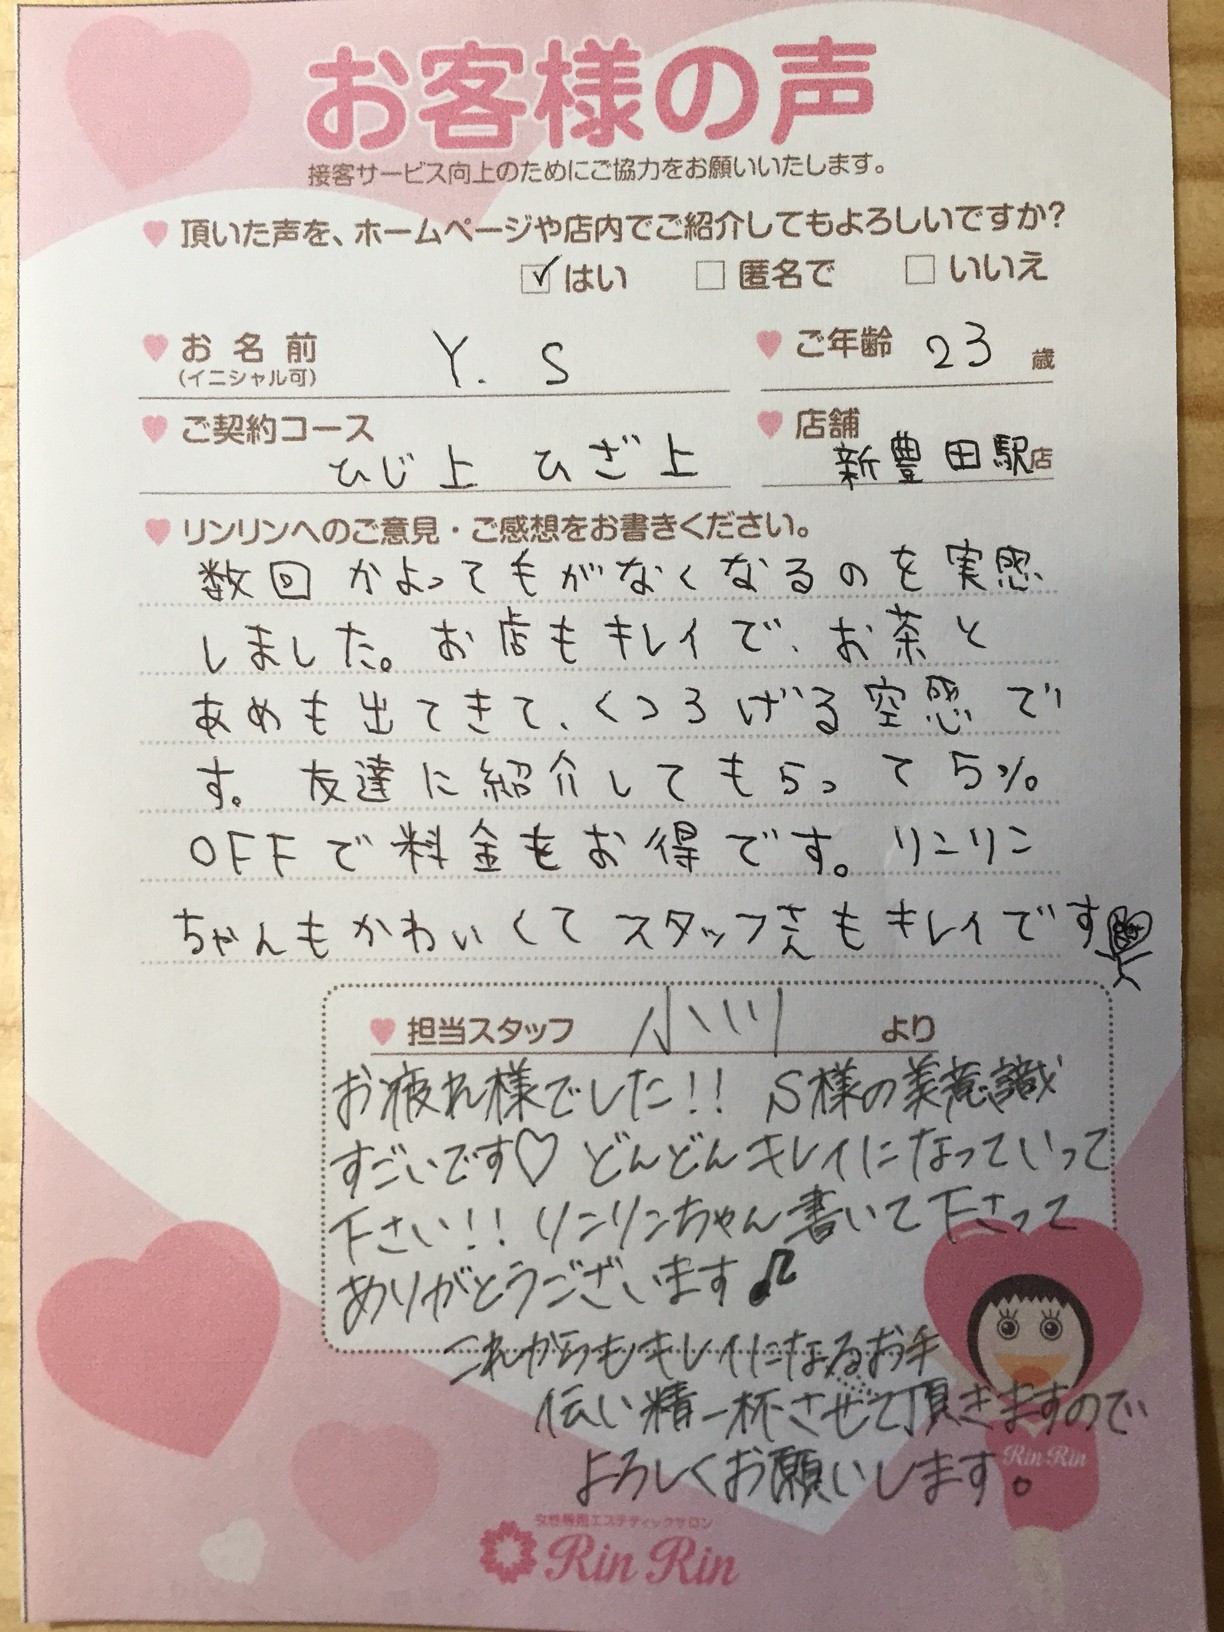 お客様の声
接客サービス向上のためにご協力をお願いいたします。
頂いた声を、ホームページや店内でご紹介してもよろしいですか?
はい 匿名で いいえ
お名前 Y. S ご年齢 23 歳
(イニシャル可)
ご契約コース 店舗
ひじ上 ひざ上 新豊田駅店
リンリンへのご意見・ご感想をお書きください。
数回かよって毛がなくなるのを実感
しました。お店もキレイで、お茶と
あめも出てきて、くつろげる空感で
す。友達に紹介してもらって5%
OFFで料金もお得です。リンリン
ちゃんもかわいくてスタッフさんもキレイです
担当スタッフ 小川 より
お疲れ様でした!! S様の美意識
すごいです♡ どんどんキレイになっていって
下さい!! リンリンちゃん書いて下さって
ありがとうございます♫
これからもキレイになるお手
伝い精一杯させて頂きますので
よろしくお願いします。
Rin Rin
女性専用エステティックサロン
Rin Rin